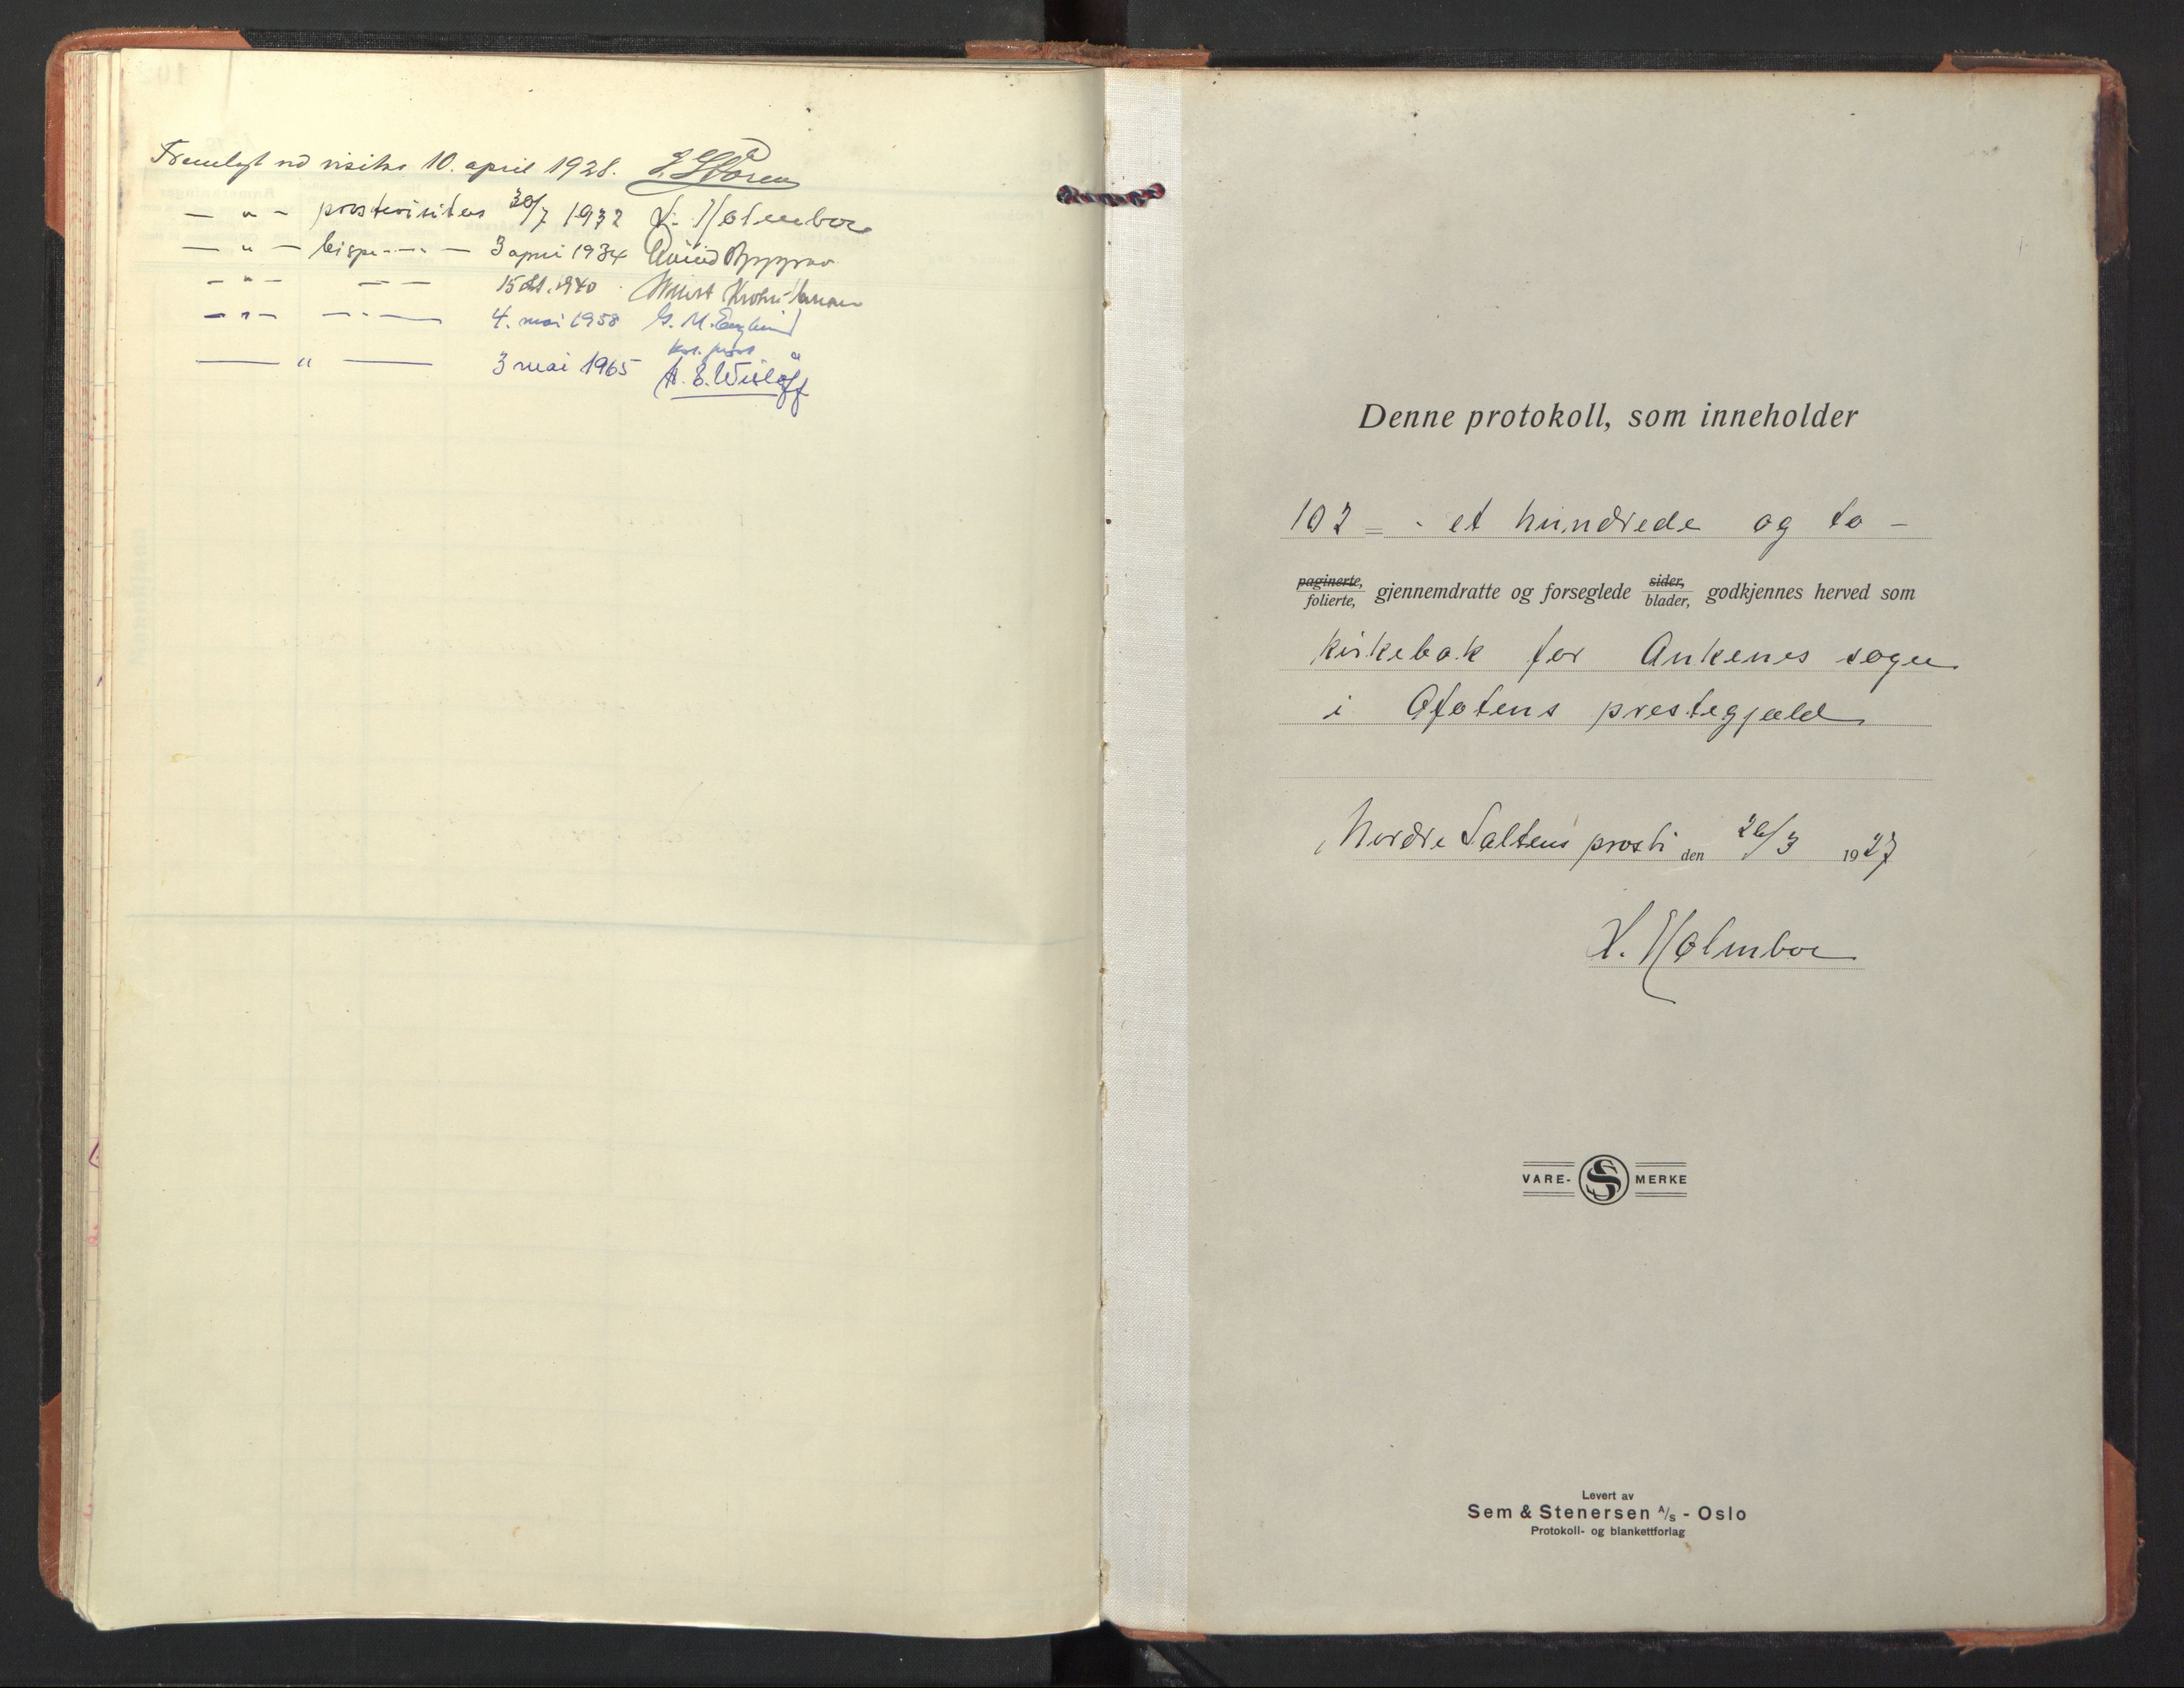 Fremlagt ved visitas 10. april 1928. J. Støren
— " — prostevisitas 30/7 1932 L. Holmboe
— " — bispe---"— 3 april 1934 Eivind Berggrav
— " — — — 15 okt. 1940 Wollert Krohn-Hansen
— " — — " — 4. mai 1958 G. M. Englund
kst. prost
— " — 3 mai 1965 H. E. Wisløff
Denne protokoll, som inneholder
102 = - et hundrede og to -
paginerte, folierte, gjennemdratte og forseglede sider, blader, godkjennes herved som
kirkebok for Ankenes sogn
i Ofotens prestegjæld
Nordre Saltens prosti den 26/3 1927
L. Holmboe
VARE- S MERKE
Levert av
Sem & Stenersen A/S - Oslo
Protokoll- og blankettforlag